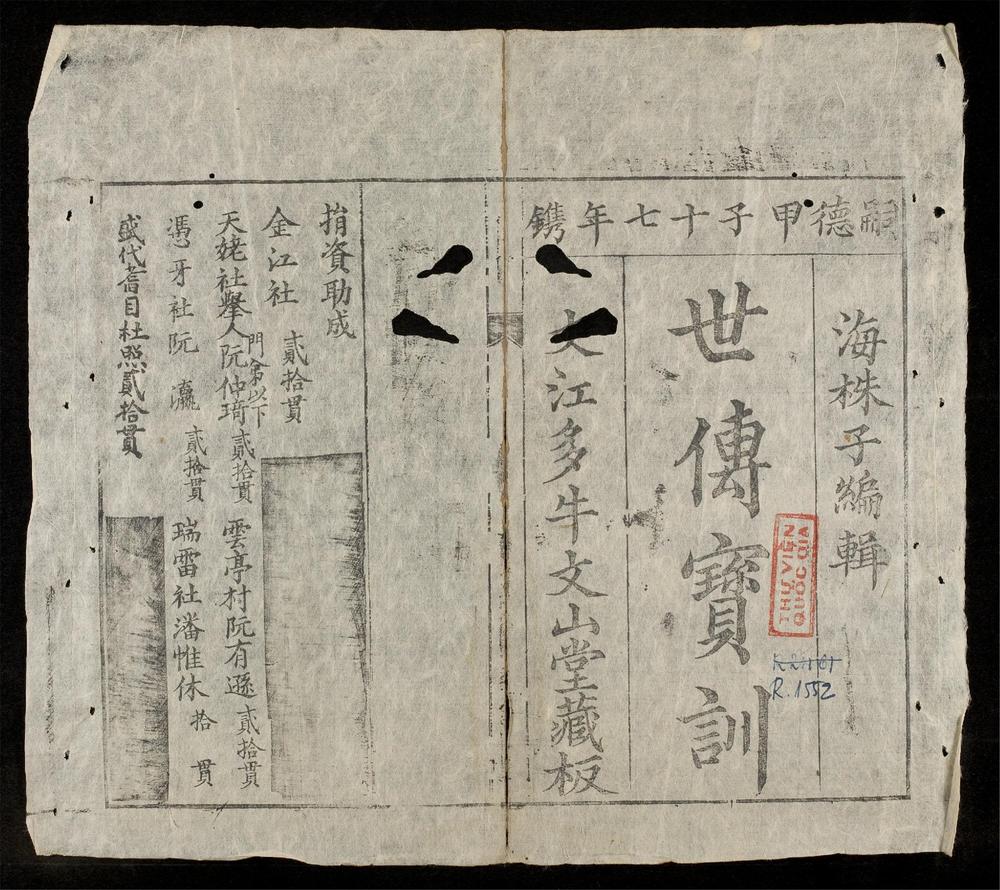 嗣德甲子十七年鐫
海株子編輯
世傳寶訓
大江多牛文山堂藏板
THƯ VIỆN
QUỐC GIA
R.1552
捐資助成
金江社 貳拾貫
天姥社舉人阮仲琦 貳拾貫 雲亭村阮有遜 貳拾貫
門弟以下
憑牙社阮瀛 貳拾貫 瑞雷社潘惟休 拾貫
盛代耆目杜照貳拾貫